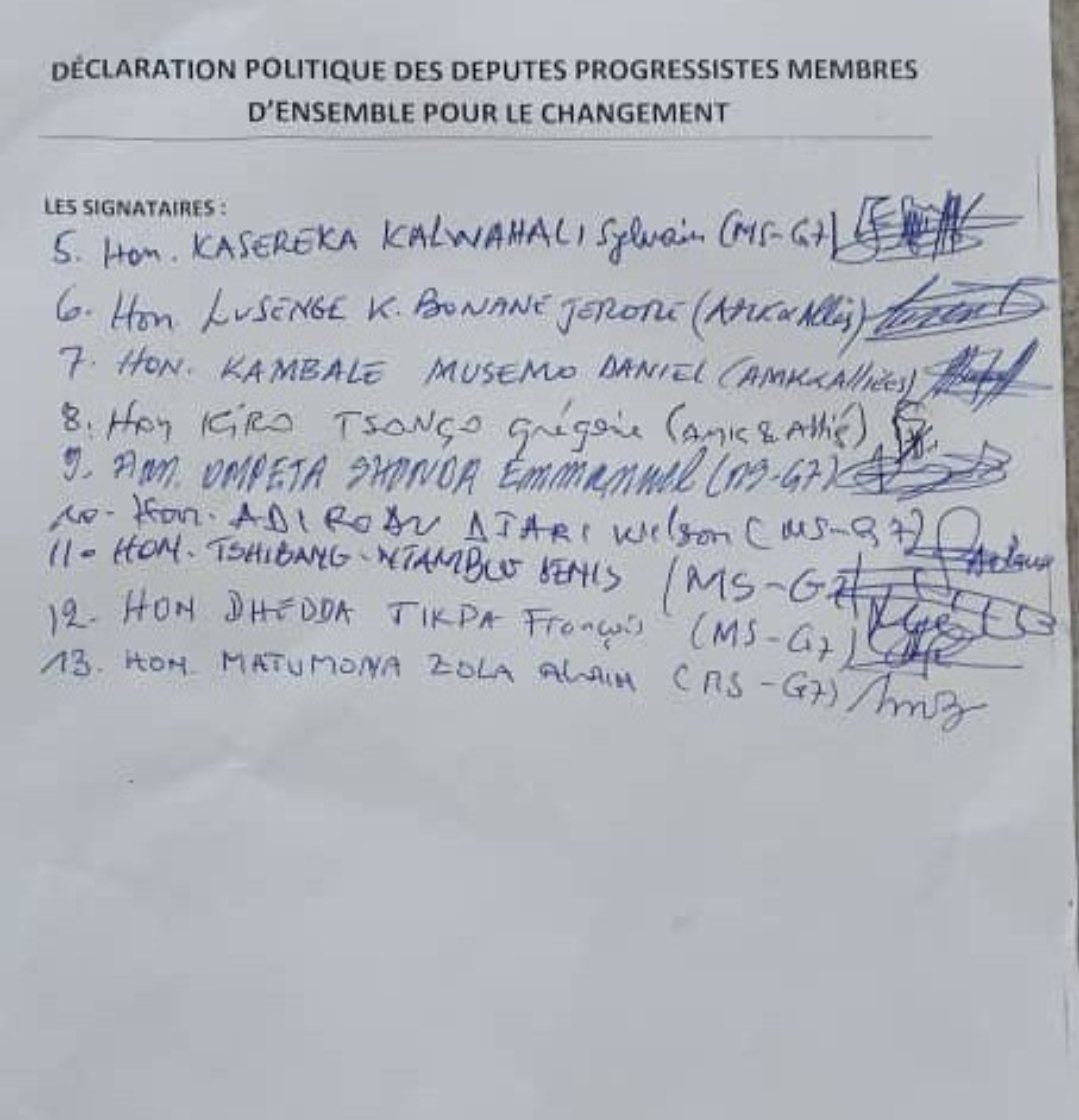 DÉCLARATION POLITIQUE DES DEPUTES PROGRESSISTES MEMBRES
D'ENSEMBLE POUR LE CHANGEMENT
LES SIGNATAIRES :
5. Hon. KASEREKA KALWAHALI Sylvain (MS-G7)
6. Hon LUSENGE K. BONANE JEROME (AMK & Alliés)
7. HON. KAMBALE MUSEMO DANIEL (AMK & Alliées)
8. Hon KIRO TSONGO Grégoire (AMK & Allié)
9. Hon. OMPETA SHONDA Emmanuel (MS-G7)
10- Hon. ADIRODU DJARI Wilson (MS-G7)
11- HON. TSHIBANG-NTAMBWE DENIS (MS-G7)
12- HON DHEDDA TIKPA François (MS-G7)
13. HON. MATUMONA ZOLA ALAIN (MS-G7)